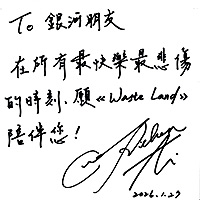 To 銀河朋友
在所有最快樂最悲傷
的時刻，願《Waste Land》
陪伴您！
2026.1.27